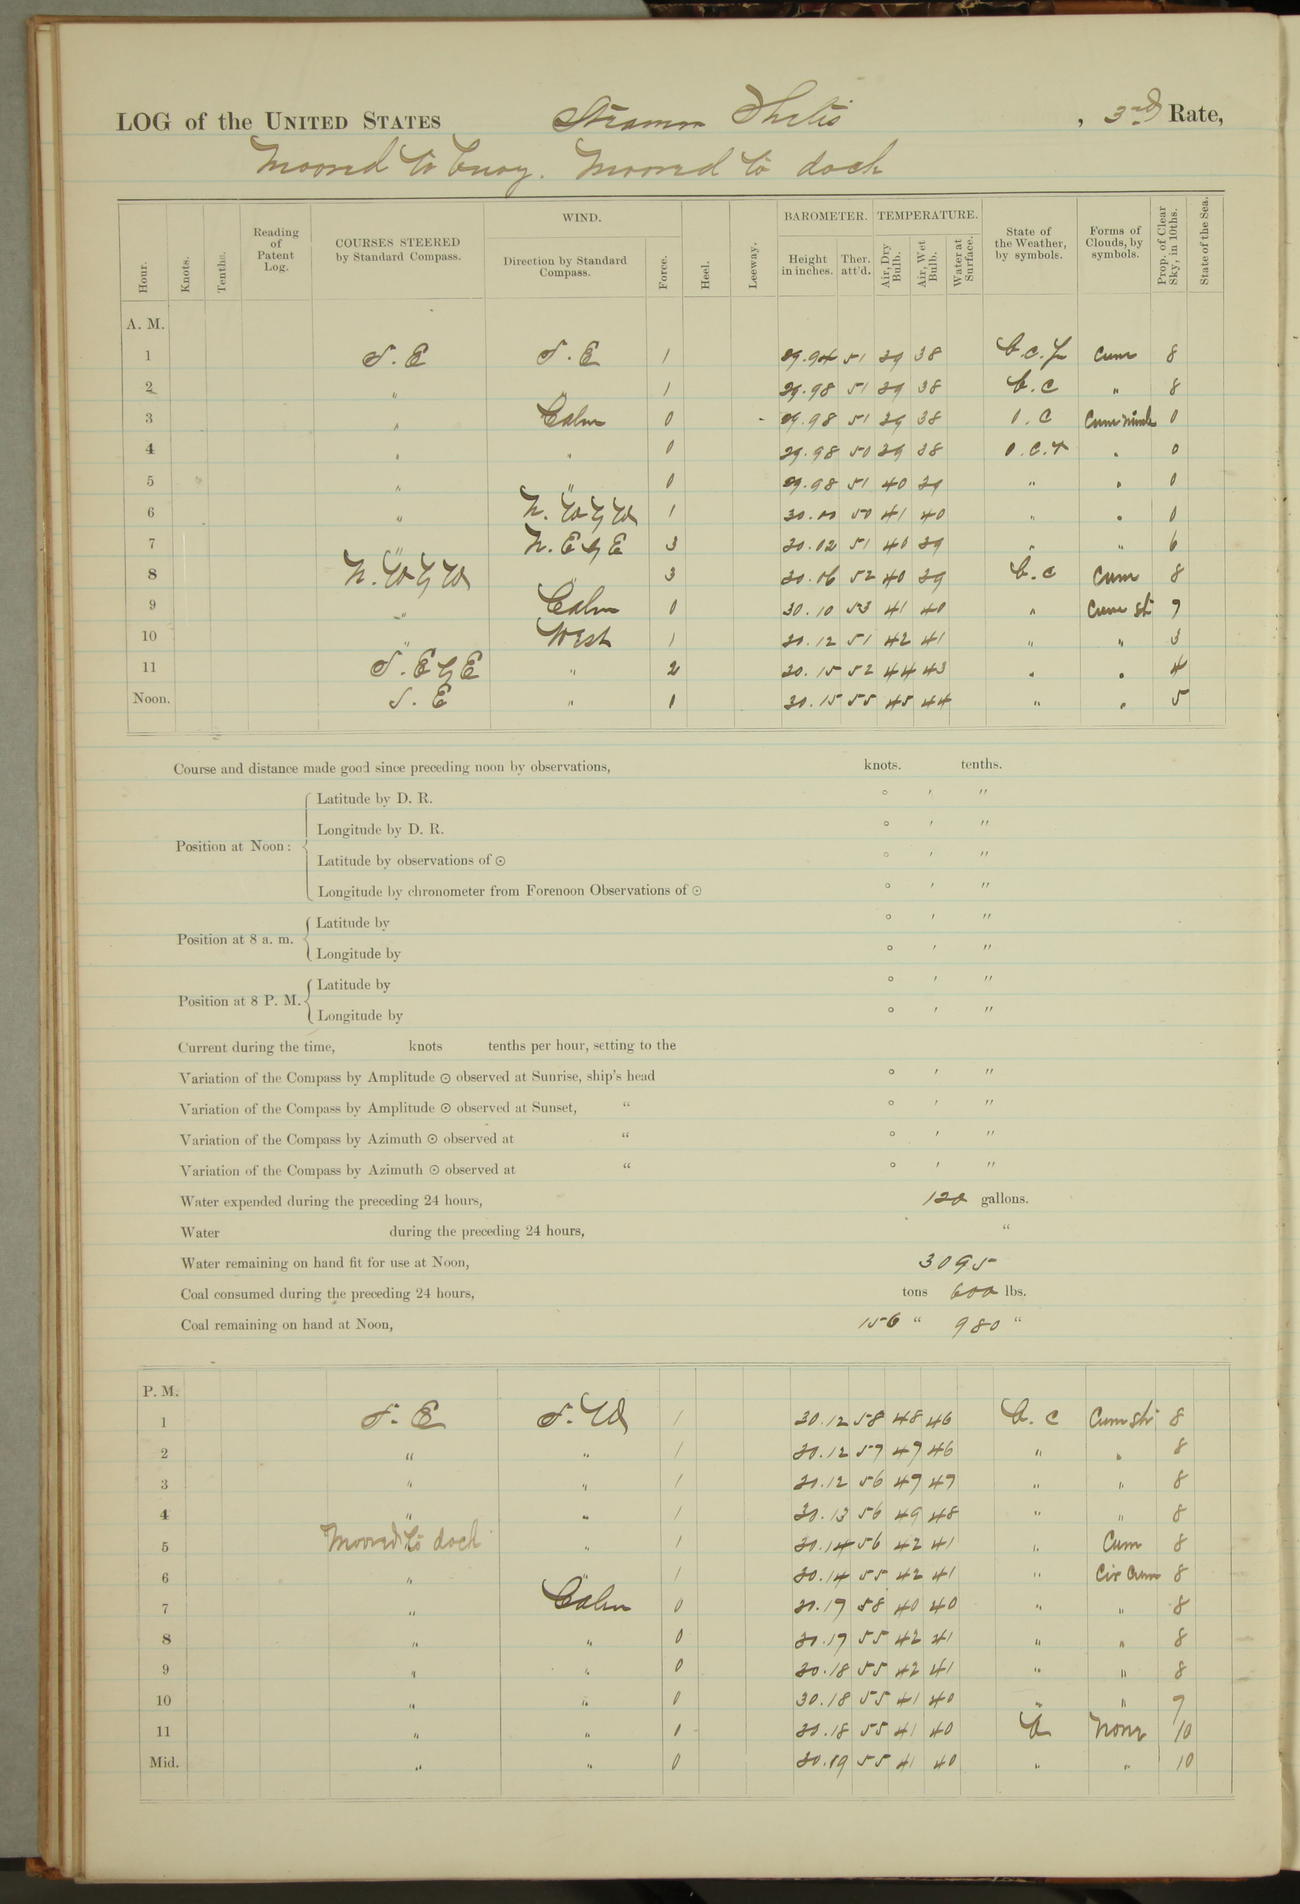 LOG of the UNITED STATES Steamer Thetis, 3rd Rate,
Moored to buoy. Moored to dock
Hour. Knots. Tenths. Reading of Patent Log. COURSES STEERED by Standard Compass. WIND. Direction by Standard Compass. Force. Heel. Leeway. BAROMETER. Height in inches. Ther. att'd. TEMPERATURE. Air, Dry Bulb. Air, Wet Bulb. Water at Surface. State of the Weather, by symbols. Forms of Clouds, by symbols. Prop. of Clear Sky, in 10ths. State of the Sea.
A. M.
1 S. E S. E 1 29.94 51 39 38 b.c. Cum 8
2 " " 1 29.98 51 39 38 b.c " 8
3 " Calm 0 29.98 51 39 38 o.c Cum Nimb 0
4 " " 0 29.98 50 39 38 o.c.r " 0
5 " " 0 29.98 51 40 39 " " 0
6 " N. W by W 1 30.00 50 41 40 " " 0
7 " N. E by E 3 30.02 51 40 39 " " 6
8 N. W by W " 3 30.06 52 40 39 b.c Cum 8
9 " Calm 0 30.10 53 41 40 " Cum str 7
10 " West 1 30.12 51 42 41 " " 3
11 S. E by E " 2 30.15 52 44 43 " " 4
Noon. S. E " 1 30.15 55 45 44 " " 5
Course and distance made good since preceding noon by observations, knots. tenths.
Position at Noon: Latitude by D. R. ° ′ ″
Longitude by D. R. ° ′ ″
Latitude by observations of ⊙ ° ′ ″
Longitude by chronometer from Forenoon Observations of ⊙ ° ′ ″
Position at 8 a. m. Latitude by ° ′ ″
Longitude by ° ′ ″
Position at 8 P. M. Latitude by ° ′ ″
Longitude by ° ′ ″
Current during the time, knots tenths per hour, setting to the
Variation of the Compass by Amplitude ⊙ observed at Sunrise, ship's head ° ′ ″
Variation of the Compass by Amplitude ⊙ observed at Sunset, " ° ′ ″
Variation of the Compass by Azimuth ⊙ observed at " ° ′ ″
Variation of the Compass by Azimuth ⊙ observed at " ° ′ ″
Water expended during the preceding 24 hours, 120 gallons.
Water during the preceding 24 hours, "
Water remaining on hand fit for use at Noon, 3095
Coal consumed during the preceding 24 hours, tons 600 lbs.
Coal remaining on hand at Noon, 156 " 980 "
P. M.
1 S. E S. W 1 30.12 58 48 46 b.c Cum str 8
2 " " 1 30.12 57 47 46 " " 8
3 " " 1 30.12 56 47 47 " " 8
4 " " 1 30.13 56 49 48 " " 8
5 Moored to dock " 1 30.14 56 42 41 " Cum 8
6 " " 1 30.14 55 42 41 " Cir Cum 8
7 " Calm 0 30.17 58 40 40 " " 8
8 " " 0 30.17 55 42 41 " " 8
9 " " 0 30.18 55 42 41 " " 8
10 " " 0 30.18 55 41 40 " " 7
11 " " 0 30.18 55 41 40 b None 10
Mid. " " 0 30.19 55 41 40 " " 10